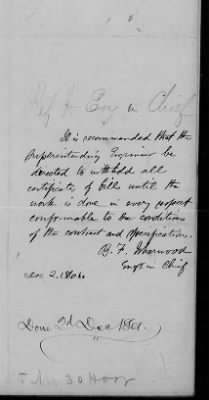 Ref'd Eng in Chief
It is recommended that the
Superintending Engineer be
directed to withhold all
certificates of bills until the
work is done in every respect
conformable to the conditions
of the contract and specifications.
B. F. Isherwood
Eng in Chief
Dec 2. 1864
Done 2d Dec 1864.